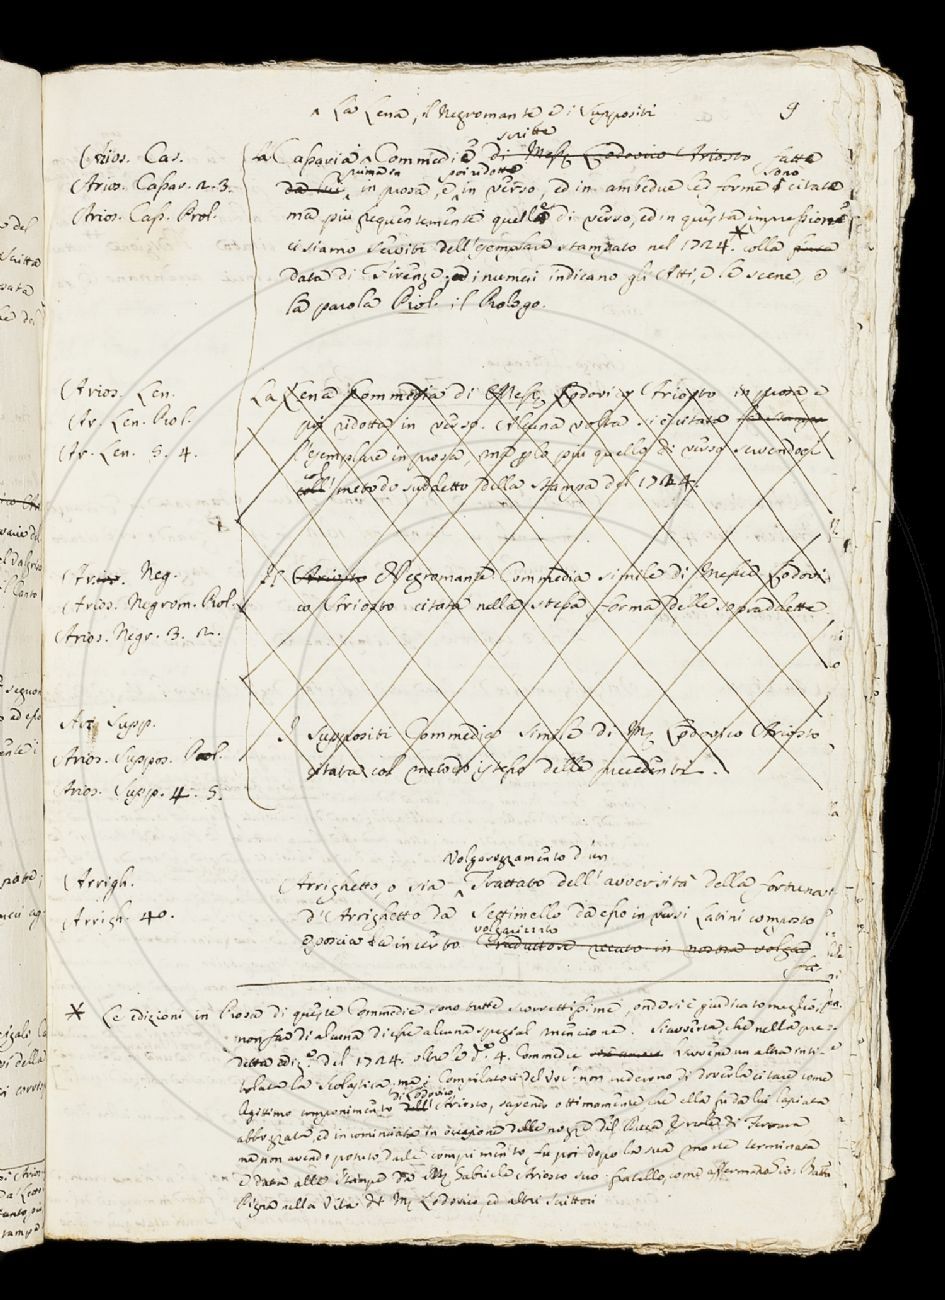 ^ La Lena, il Negromante e i Suppositi
9
scritte
Arios. Cas. La Cassaria ^ Commedie di Mess. Lodovico Ariosto, fatte
prima poi ridotte sono
Arios. Cassar. 2. 3. da lui in prosa, e in verso, ed in ambedue le forme citate
Arios. Cass. Prol. ma più frequentemente quelle di verso, ed in questa impressione
ci siamo serviti dell'esemplare stampato nel 1724.* colla
data di Firenze, ed i numeri indicano gli Atti, e le scene, e
la parola Prol. il Prologo.
Arios. Len. La Lena Commedia di Mess. Lodovico Ariosto in prosa e
Ar. Len. Prol. poi ridotta in verso. Alcuna volta si è citato
Ar. Len. 5. 4. l'esemplare in prosa, ma per lo più quello di verso servendoci
col metodo suddetto della stampa del 1724.
Arios. Neg. Il Ariosto Negromante Commedia simile di Messer Lodovi
Arios. Negrom. Prol. co Ariosto citata nella stessa forma delle sopraddette
Arios. Negr. 3. 2.
Ar. Supp. I Suppositi Commedia simile di M. Lodovico Ariosto
Arios. Suppos. Prol. citata col metodo stesso delle precedenti.
Arios. Supp. 4. 5.
Volgarizzamento d'un
Arrigh. Arrighetto o sia ^ Trattato dell'avversità della fortuna
Arrigh. 40. d'Arrighetto da Settimello da esso in versi Latini composto
volgarizzato
e poscia da incerto Traduttore recato in nostra volgar
* Le edizioni in Prosa di queste Commedie sono tutte scorrettissime, onde si è giudicato meglio,
non far di alcuna di esse alcuna spezial menzione. Si avverta, che nella pre-
detta ediz. del 1724. oltre le d. 4. Commedie ve n'è un'altra inti-
tolata la Scolastica, ma i Compilatori del Voc. non crederono di doverla citare come
di Lodovico
legittimo componimento Ariosto, sapendo ottimamente che ella fu da lui lasciata
abbozzata, ed incominciata in occasione delle nozze del Duca Ercole di Ferrara
ma non avendo potuto darle compimento, fu poi dopo la sua morte terminata
e data alle stampe da M. Gabriele Ariosto suo fratello, come affermano Gio. Batt.
Pigna nella Vita di M. Lodovico, ed altri Scrittori